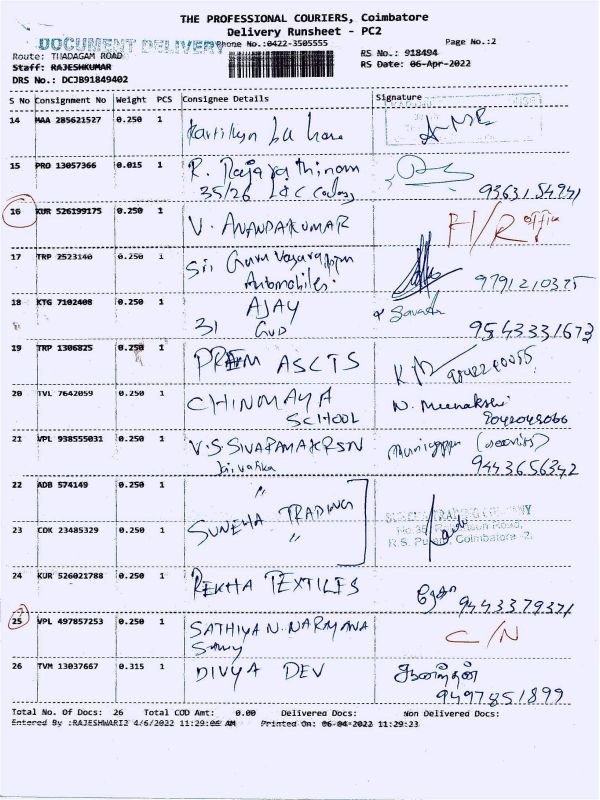 THE PROFESSIONAL COURIERS, Coimbatore
Delivery Runsheet - PC2
DOCUMENT DELIVERY
Phone No.:0422-3505555
Page No.:2
Route: THADAGAM ROAD
RS No.: 918494
Staff: RAJESHKUMAR
RS Date: 06-Apr-2022
DRS No.: DCJB91849402
S No Consignment No Weight PCS Consignee Details Signature
14 MAA 285621527 0.250 1
15 PRO 13057366 0.015 1 R. Rajarathinam
35/26 L&C Colony 9363154941
16 KUR 526199175 0.250 1 V. ANANDAKUMAR H/R office
17 TRP 2523140 0.250 1 Sri Guru Vayurappan
Automobiles. 9791210375
18 KTG 7102408 0.250 1 AJAY
31 GVD 9543331673
19 TRP 1306825 0.250 1 PREM ASCTS
20 TVL 7642059 0.250 1 CHINMAYA N. Meenakshi
SCHOOL 9042049066
21 VPL 938555031 0.250 1 V.S. SIVARAMAKRSN
9443656342
22 ADB 574149 0.250 1 "
SUNEHA TRADING
SUNEHA TRADING COMPANY
23 CDK 23485329 0.250 1 "
R.S. Puram, Coimbatore -2.
24 KUR 526021788 0.250 1 REKHA TEXTILES
9443379371
25 VPL 497857253 0.250 1 SATHIYA N. NARAYANA C/N
Samy
26 TVM 13037667 0.315 1 DIVYA DEV ஆனந்தன்
9497851899
Total No. Of Docs: 26 Total COD Amt: 0.00 Delivered Docs: Non Delivered Docs:
Entered By :RAJESHWARI2 4/6/2022 11:29:06 AM Printed On: 06-04-2022 11:29:23